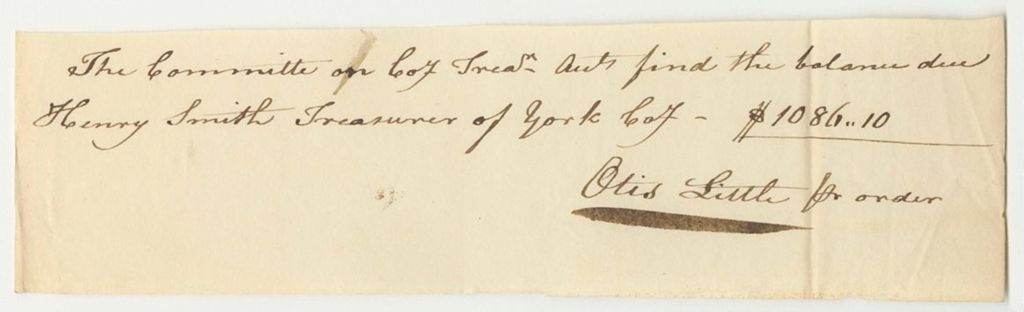 The Committe on Coy Treasn Acts find the balance due
Henry Smith Treasurer of York Coy - $1086..10
Otis Little pr order